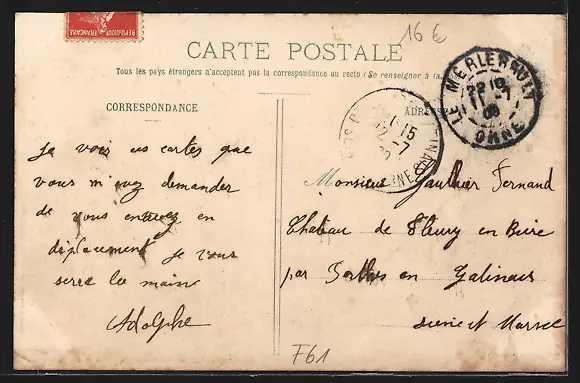 16 €
REPUBLIQUE FRANÇAISE
CARTE POSTALE
Tous les pays étrangers n'acceptent pas la correspondance au recto (Se renseigner à la
CORRESPONDANCE
ADRESSE
LE MERLERAULT
22 10
11 -7
08
ORNE
15
12 -7
Je vois vos cartes que
vous m'avez demander
de vous envoyez en
déplacement je vous
serre la main
Adolphe
Monsieur Gauthier Fernand
Chateau de Fleury en Biere
par Perthes en Gatinais
Seine et Marne
F61